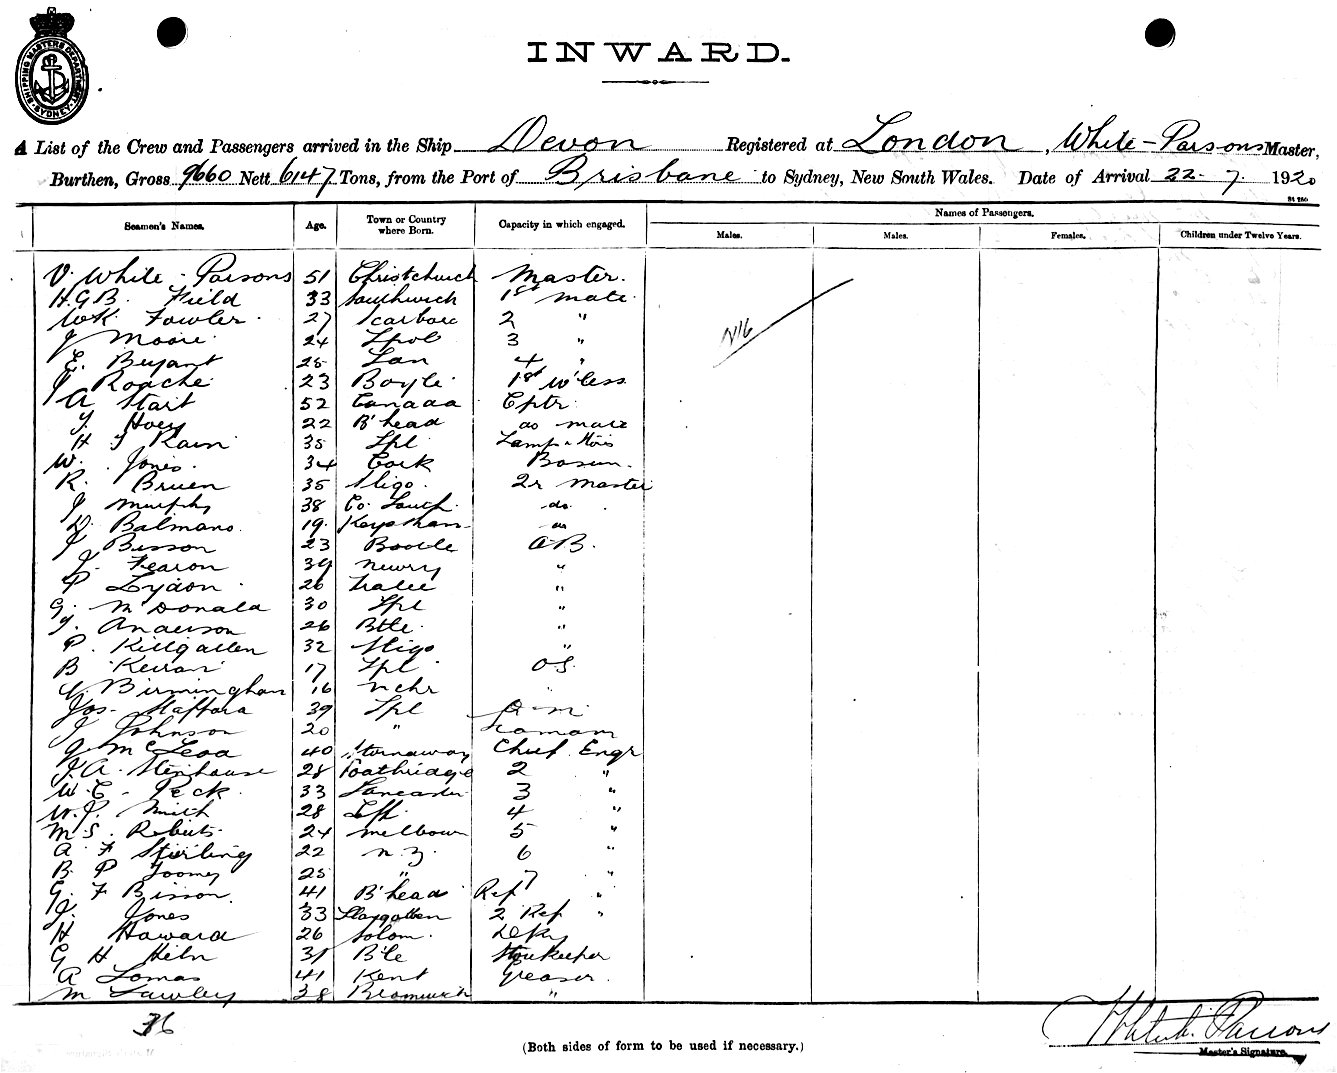 SHIPPING MASTERS DEPARTMENT SYDNEY
INWARD.
A List of the Crew and Passengers arrived in the Ship Devon Registered at London, White-Parsons Master,
Burthen, Gross 9660 Nett 6147 Tons, from the Port of Brisbane to Sydney, New South Wales. Date of Arrival 22. 7. 1920
Seamen's Names. Age. Town or Country where Born. Capacity in which engaged. Names of Passengers.
Males. Males. Females. Children under Twelve Years.
V. White-Parsons 51 Christchurch Master.
H.G.B. Field 33 Southwich 1st mate.
W.K. Fowler 27 Scarboro 2 "
J Moore 24 Lpol 3 "
E. Bryant 25 Lon 4 "
J Roache 23 Boyle 1st w'less
A Start 52 Canada Cptr
J. Hoey 22 B'head do mate
H J Rain 35 Lpl Lamp
W. Jones. 34 Cork Bosun.
R. Bruen 35 Sligo. 2r master
J Murphy 38 Co. Louth. do.
D. Balmano. 19. Keysham do
J Bisson 23 Bootle AB.
J. Fearon 39 Newry "
P Lydon 26 Tralee "
G. McDonald 30 Lpl "
J. Anderson 26 Btle. "
P. Killgallen 32 Sligo "
B Keiran 17 Lpl OS.
Birmingham 16 Mchr "
Jos. Stafford 39 Lpl
J Johnson 20 " Seaman
J McLeod 40 Stornaway Chief Engr
J.A. Stenhouse 28 Coatbridge 2 "
W.C. Peck 33 Lancaster 3 "
W.J. Smith 28 4 "
M S. Roberts. 24 Melbourn 5 "
A F Stirling 22 N.Z. 6 "
B P Toomey 25 " 7 "
G. F Bisson. 41 B'head Ref "
J. Jones 33 Llangollen 2 Ref "
H Howard 26 Dky
G H 31 B'le Storekeeper
A Lomas 41 Kent Greaser.
M Lawley 38 Bromwich "
Nil
36
(Both sides of form to be used if necessary.)
White-Parsons
Master's Signature.